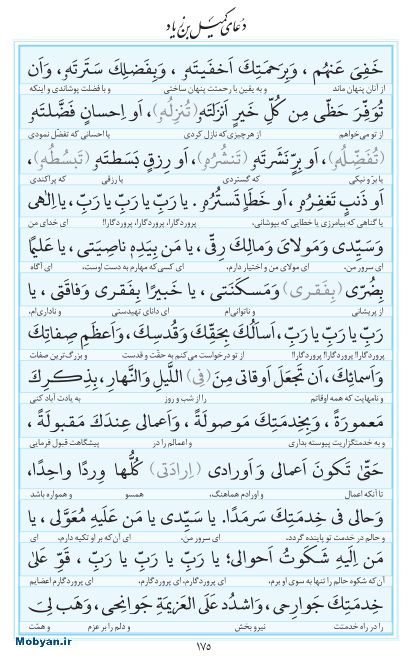 دعای کمیل بن زیاد
خَفِیَ عَنهُم ، وَبِرَحمَتِكَ اَخفَیتَهُ ، وَبِفَضلِكَ سَتَرتَهُ ، وَاَن
از آنان پنهان ماند و به یقین با رحمتت پنهان ساختی و با فضلت پوشاندی و اینکه
تُوَفِّرَ حَظّی مِن کُلِّ خَیرٍ اَنزَلتَهُ (تُنزِلُهُ) ، اَو اِحسانٍ فَضَّلتَهُ
از تو می‌خواهم از هرچیزی که نازل کردی یا احسانی که تفضّل نمودی
(تُفَضِّلُهُ) ، اَو بِرٍّ نَشَرتَهُ (تَنشُرُهُ) ، اَو رِزقٍ بَسَطتَهُ (تَبسُطُهُ) ،
یا برّ و نیکی که گستردی یا رزقی که پراکندی
اَو ذَنبٍ تَغفِرُهُ ، اَو خَطَاٍ تَستُرُهُ . یا رَبِّ یا رَبِّ یا رَبِّ ، یا اِلٰهی
یا گناهی که بیامرزی یا خطایی که بپوشانی، پروردگارا، پروردگارا، پروردگارا!! ای خدای من
وَسَیِّدی وَمَولایَ وَمالِكَ رِقّی ، یا مَن بِیَدِهِ ناصِیَتی ، یا عَلیمًا
ای سرور من، ای مولای من و اختیار دارم، ای کسی که مهارم به دست اوست، ای آگاه
بِضُرّی (بِفَقری) وَمَسکَنَتی ، یا خَبیرًا بِفَقری وَفاقَتی ، یا
از پریشانی و ناتوانی‌ام ای دانای تهیدستی و ناداری‌ام،
رَبِّ یا رَبِّ یا رَبِّ ، اَسأَلُكَ بِحَقِّكَ وَقُدسِكَ ، وَاَعظَمِ صِفاتِكَ
پروردگارا! پروردگارا! پروردگارا! از تو درخواست می‌کنم به حقّت و قدست و بزرگ‌ترین صفات
وَاَسمائِكَ ، اَن تَجعَلَ اَوقاتی مِنَ (فِی) اللَّیلِ وَالنَّهارِ ، بِذِکرِكَ
و نامهایت که همه اوقاتم را از شب و روز به یادت آباد کنی
مَعمورَةً ، وَبِخِدمَتِكَ مَوصولَةً ، وَاَعمالی عِندَكَ مَقبولَةً ،
و به خدمتگزاریت پیوسته بداری و اعمالم را در پیشگاهت قبول فرمایی
حَتّیٰ تَکونَ اَعمالی وَاَورادی (اِرادَتی) کُلُّها وِردًا واحِدًا ،
تا آنکه اعمال و اورادم هماهنگ، همسو و همواره باشد
وَحالی فی خِدمَتِكَ سَرمَدًا . یا سَیِّدی یا مَن عَلَیهِ مُعَوَّلی ، یا
و حالم در خدمت تو پاینده گردد، ای سرور من، ای آن‌که بر او تکیه دارم، ای
مَن اِلَیهِ شَکَوتُ اَحوالی؛ یا رَبِّ یا رَبِّ یا رَبِّ ، قَوِّ عَلیٰ
آن‌که شکوه حالم را تنها به سوی او برم، ای پروردگارم، ای پروردگارم، ای پروردگارم اعضایم
خِدمَتِكَ جَوارِحی ، وَاشدُد عَلَی العَزیمَةِ جَوانِحی ، وَهَب لِیَ
را در راه خدمتت نیرو بخش و دلم را بر عزم و همّت
۱۷۵
Mobyan.ir